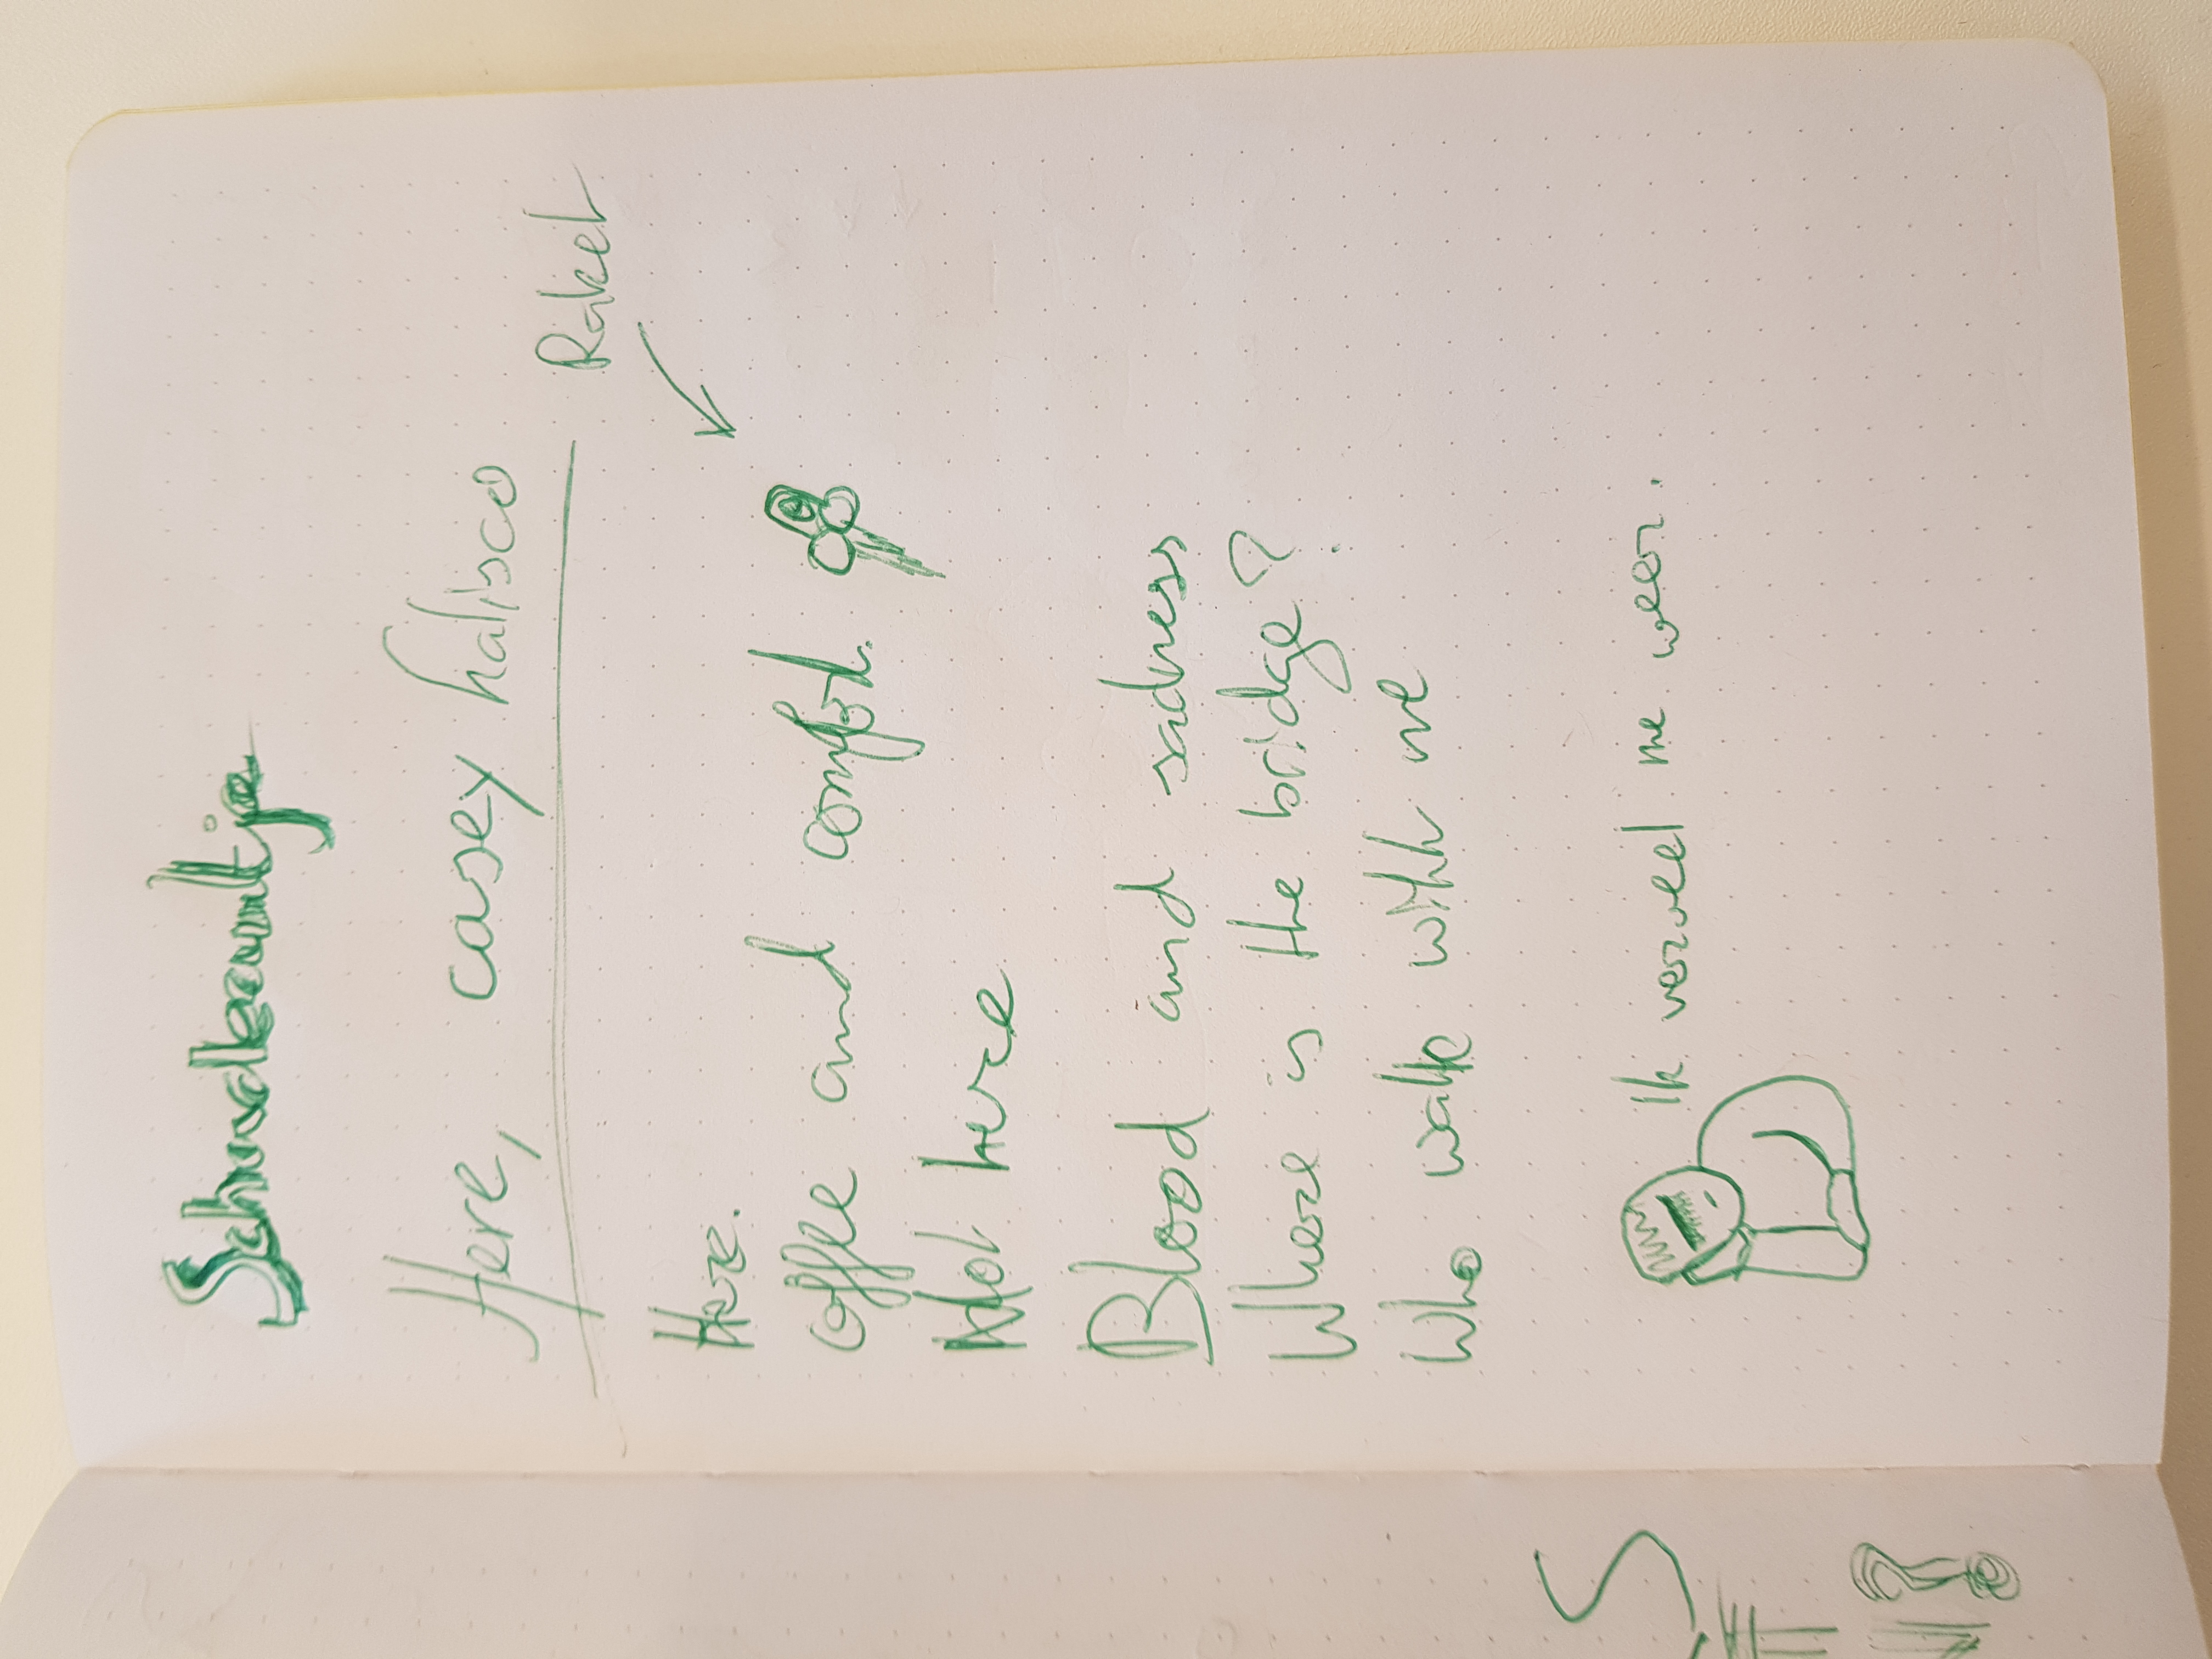 Here, casey halisco
Raket
Here.
Coffee and comfort.
Not here
Blood and sadness
Where is the bridge?
Who walk with me
Ik verveel me weer.
S
?